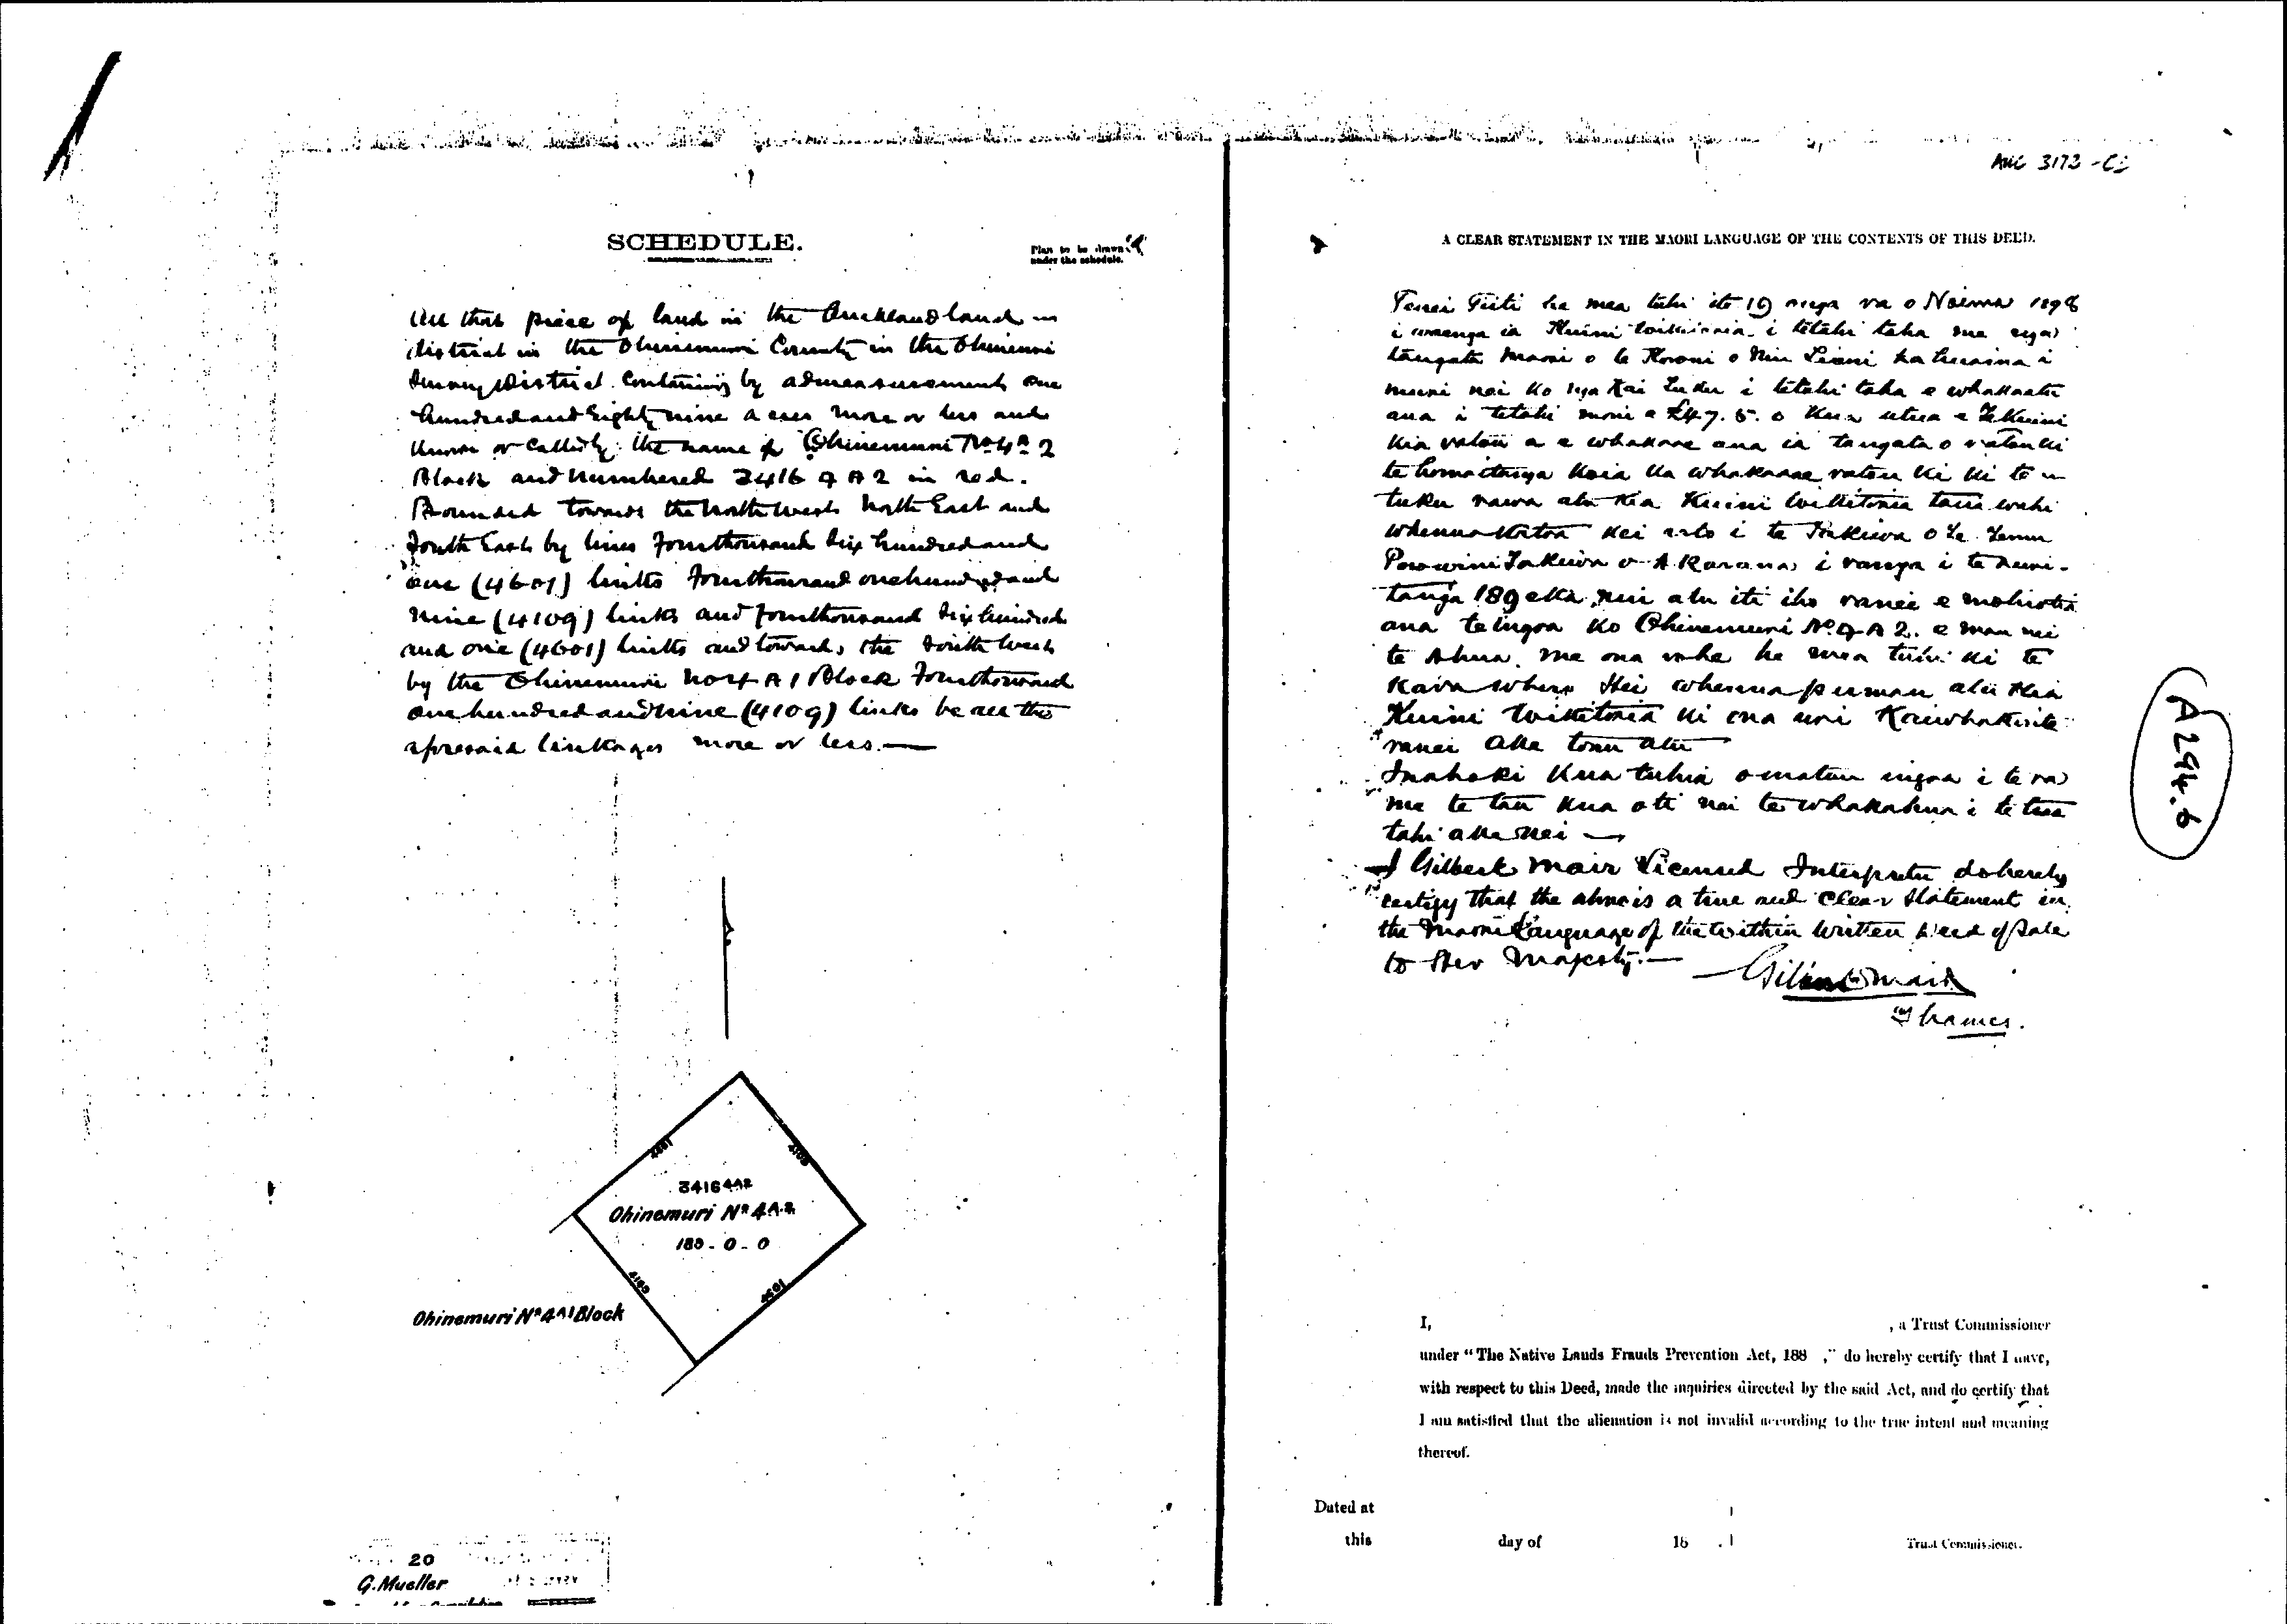 AUC 3172 -
SCHEDULE.
Plan to be drawn
under the schedule.
All that piece of land in the Auckland land
district in the Ohinemuri County in the Ohinemuri
District. Containing by admeasurement one
hundred and Eighty nine acres more or less and
known or called by the name of Ohinemuri No 4A 2
Block and numbered 3416 4 A 2 in red.
Bounded towards the North West North East and
South East by lines Four thousand Six hundred and
one (4601) links Four thousand one hundred and
nine (4109) links and Four thousand Six hundred
and one (4601) links and towards the South West
by the Ohinemuri No 4 A 1 Block Four thousand
one hundred and nine (4109) links be all the
aforesaid linkages more or less.—
4601
4109
3416 4A2
Ohinemuri No 4A.2
189 - 0 - 0
4109
4601
Ohinemuri No 4A1 Block
20
G. Mueller
A CLEAR STATEMENT IN THE MAORI LANGUAGE OF THE CONTENTS OF THIS DEED.
Tenei Tiiti he mea tuhi i te 19 o nga ra o Noema 1896
i waenga ia Kuini Wikitoria i tetahi taha me nga
tangata maori o te Koroni o Niu Tireni ka turaina i
muri nei ko nga Kai Tuku i tetahi taha e whakaatu
ana i tetahi moni e £47. 5. 0 kua utua e Te Kuini
kia ratou a e whakaae ana ia tangata o ratou ki
te homaitanga koia ka whakaaae ratou ki te
tuku rawa atu kia Kuini Wikitoria taua wahi
whenua katoa kei roto i te Takiwa o Te
Porowini Takiwa o Akarana i raro i te
tanga 189 eka nui atu iti iho ranei e mohiotia
ana te ingoa ko Ohinemuri No 4 A 2. e mau nei
te Ahua, me ona rohe he mea tuhi ki te
Kara whero Hei whenua pumau atu kia
Kuini Wikitoria ki ona uri Kaiwhakarite
ranei Ake tonu atu
Inahoki kua tuhia o matou ingoa i te ra
me te tau kua oti nei te whakahua i te tua
tahi ake nei —
I Gilbert Mair Licensed Interpreter do hereby
certify that the above is a true and clear statement in
the Maori Language of the within written Deed of Sale
to Her Majesty.—
Gilbert Mair
Thames.
A 294.6
I, , a Trust Commissioner
under “The Native Lands Frauds Prevention Act, 188 ,” do hereby certify that I have,
with respect to this Deed, made the inquiries directed by the said Act, and do certify that
I am satisfied that the alienation is not invalid according to the true intent and meaning
thereof.
Dated at
this day of 18 .
Trust Commissioner.